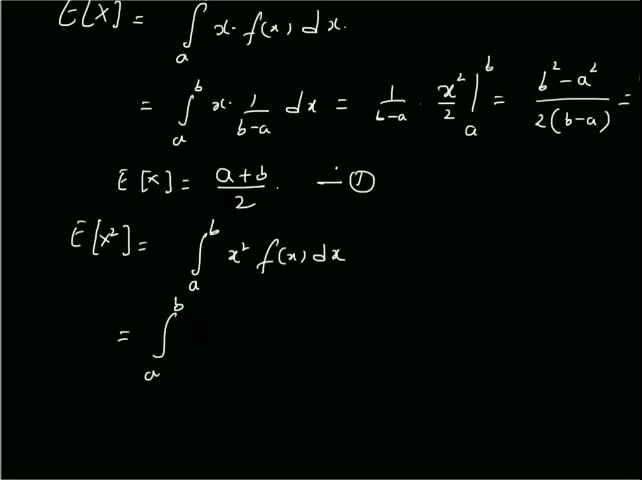 E[X] = ∫ₐ x. f(x) dx.
= ∫ₐᵇ x. 1/(b-a) dx = 1/(b-a) . x²/2 |ₐᵇ = (b²-a²)/(2(b-a)) =
E[X] = (a+b)/2. — ①
E[X²] = ∫ₐᵇ x² f(x) dx
= ∫ₐᵇ